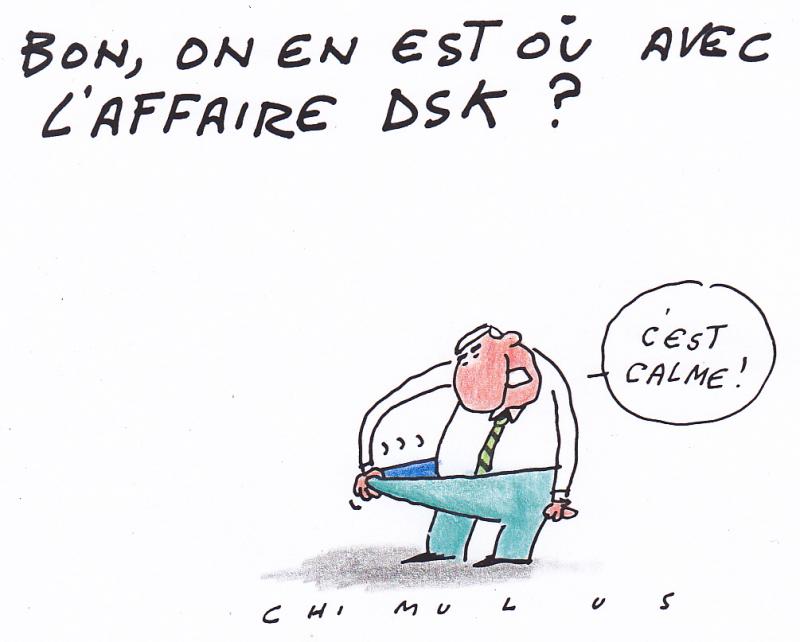 BON, ON EN EST OÙ AVEC
L'AFFAIRE DSK ?
C'EST
CALME !
CHIMULUS